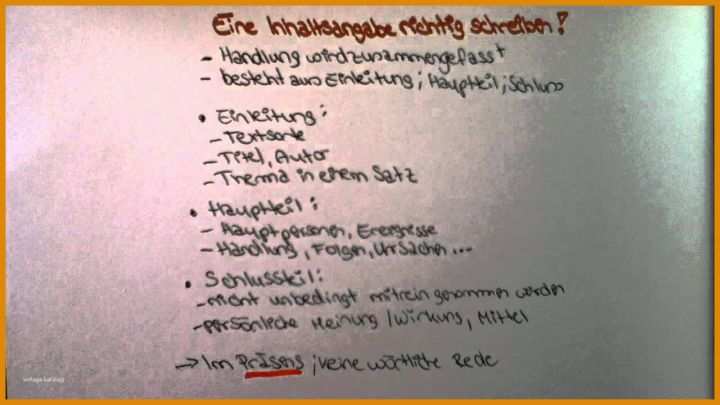 Eine Inhaltsangabe richtig schreiben!
- Handlung wird zusammengefasst
- besteht aus Einleitung; Hauptteil; Schluss
• Einleitung:
- Textsorte
- Titel, Autor
- Thema in einem Satz
• Hauptteil:
- Hauptpersonen, Ereignisse
- Handlung, Folgen, Ursachen ...
• Schlussteil:
- nicht unbedingt mitrein genommen werden
- persönliche Meinung / Wirkung, Mittel
→ Im Präsens; keine wörtliche Rede